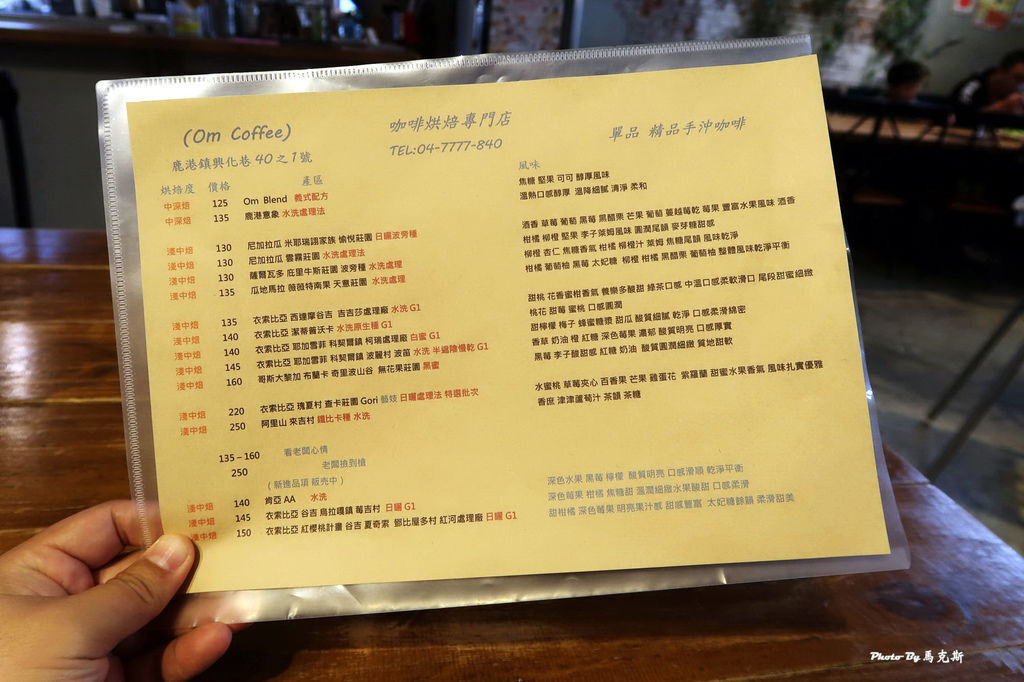 (Om Coffee) 咖啡烘焙專門店 單品 精品手沖咖啡
鹿港鎮興化巷40之1號 TEL:04-7777-840
烘焙度 價格 產區 風味
中深焙 125 Om Blend 義式配方 焦糖 堅果 可可 醇厚風味
中深焙 135 鹿港意象 水洗處理法 溫熱口感醇厚 溫降細膩 清淨 柔和
淺中焙 130 尼加拉瓜 米耶瑞詡家族 愉悅莊園 日曬波旁種 酒香 草莓 葡萄 黑莓 黑醋栗 芒果 葡萄 蔓越莓乾 莓果 豐富水果風味 酒香
淺中焙 130 尼加拉瓜 雲霧莊園 水洗處理法 柑橘 柳橙 堅果 李子萊姆風味 圓潤尾韻 麥芽糖甜感
淺中焙 130 薩爾瓦多 庇里牛斯莊園 波旁種 水洗處理 柳橙 杏仁 焦糖香氣 柑橘 柳橙汁 萊姆 焦糖尾韻 風味乾淨
淺中焙 135 瓜地馬拉 薇薇特南果 天意莊園 水洗處理 柑橘 葡萄柚 黑莓 太妃糖 柳橙 柑橘 黑醋栗 葡萄柚 整體風味乾淨平衡
淺中焙 135 衣索比亞 西達摩谷吉 吉吉莎處理廠 水洗 G1 甜桃 花香蜜柑香氣 養樂多酸甜 綠茶口感 中溫口感柔軟滑口 尾段甜蜜細緻
淺中焙 140 衣索比亞 潔蒂普沃卡 水洗原生種 G1 桃花 甜莓 蜜桃 口感圓潤
淺中焙 140 衣索比亞 耶加雪菲 科契爾鎮 柯瑞處理廠 白蜜 G1 甜檸檬 梅子 蜂蜜糖漿 甜瓜 酸質細膩 乾淨 口感柔滑綿密
淺中焙 145 衣索比亞 耶加雪菲 科契爾鎮 波麗村 波笛 水洗 半遮陰慢乾 G1 香草 奶油 橙 紅糖 深色莓果 濃郁 酸質明亮 口感厚實
淺中焙 160 哥斯大黎加 布蘭卡 奇里波山谷 無花果莊園 黑蜜 黑莓 李子酸甜感 紅糖 奶油 酸質圓潤細緻 質地甜軟
淺中焙 220 衣索比亞 瑰夏村 查卡莊園 Gori 藝妓 日曬處理法 特選批次 水蜜桃 草莓夾心 百香果 芒果 雞蛋花 紫羅蘭 甜蜜水果香氣 風味扎實優雅
淺中焙 250 阿里山 來吉村 鐵比卡種 水洗 香庶 津津蘆筍汁 茶韻 茶糖
135–160 看老闆心情
250 老闆撿到槍
(新進品項 販売中)
淺中焙 140 肯亞 AA 水洗 深色水果 黑莓 檸檬 酸質明亮 口感滑順 乾淨平衡
淺中焙 145 衣索比亞 谷吉 烏拉嘎鎮 莓吉村 日曬 G1 深色莓果 柑橘 焦糖甜 溫潤細緻水果酸甜 口感柔滑
淺中焙 150 衣索比亞 紅櫻桃計畫 谷吉 夏奇索 鄧比屋多村 紅河處理廠 日曬 G1 甜柑橘 深色莓果 明亮果汁感 甜感豐富 太妃糖餘韻 柔滑甜美
Photo By 馬克斯